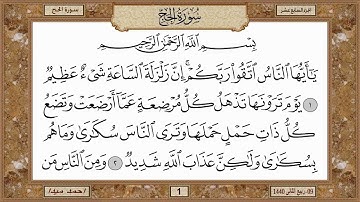 سورة الحج
الجزء السابع عشر
سُورَةُ الحَجِّ
بِسْمِ اللَّهِ الرَّحْمَٰنِ الرَّحِيمِ
يَا أَيُّهَا النَّاسُ اتَّقُوا رَبَّكُمْ ۚ إِنَّ زَلْزَلَةَ السَّاعَةِ شَيْءٌ عَظِيمٌ
١ يَوْمَ تَرَوْنَهَا تَذْهَلُ كُلُّ مُرْضِعَةٍ عَمَّا أَرْضَعَتْ وَتَضَعُ
كُلُّ ذَاتِ حَمْلٍ حَمْلَهَا وَتَرَى النَّاسَ سُكَارَىٰ وَمَا هُم
بِسُكَارَىٰ وَلَٰكِنَّ عَذَابَ اللَّهِ شَدِيدٌ ٢ وَمِنَ النَّاسِ مَن
09- ربيع الثاني 1440
1